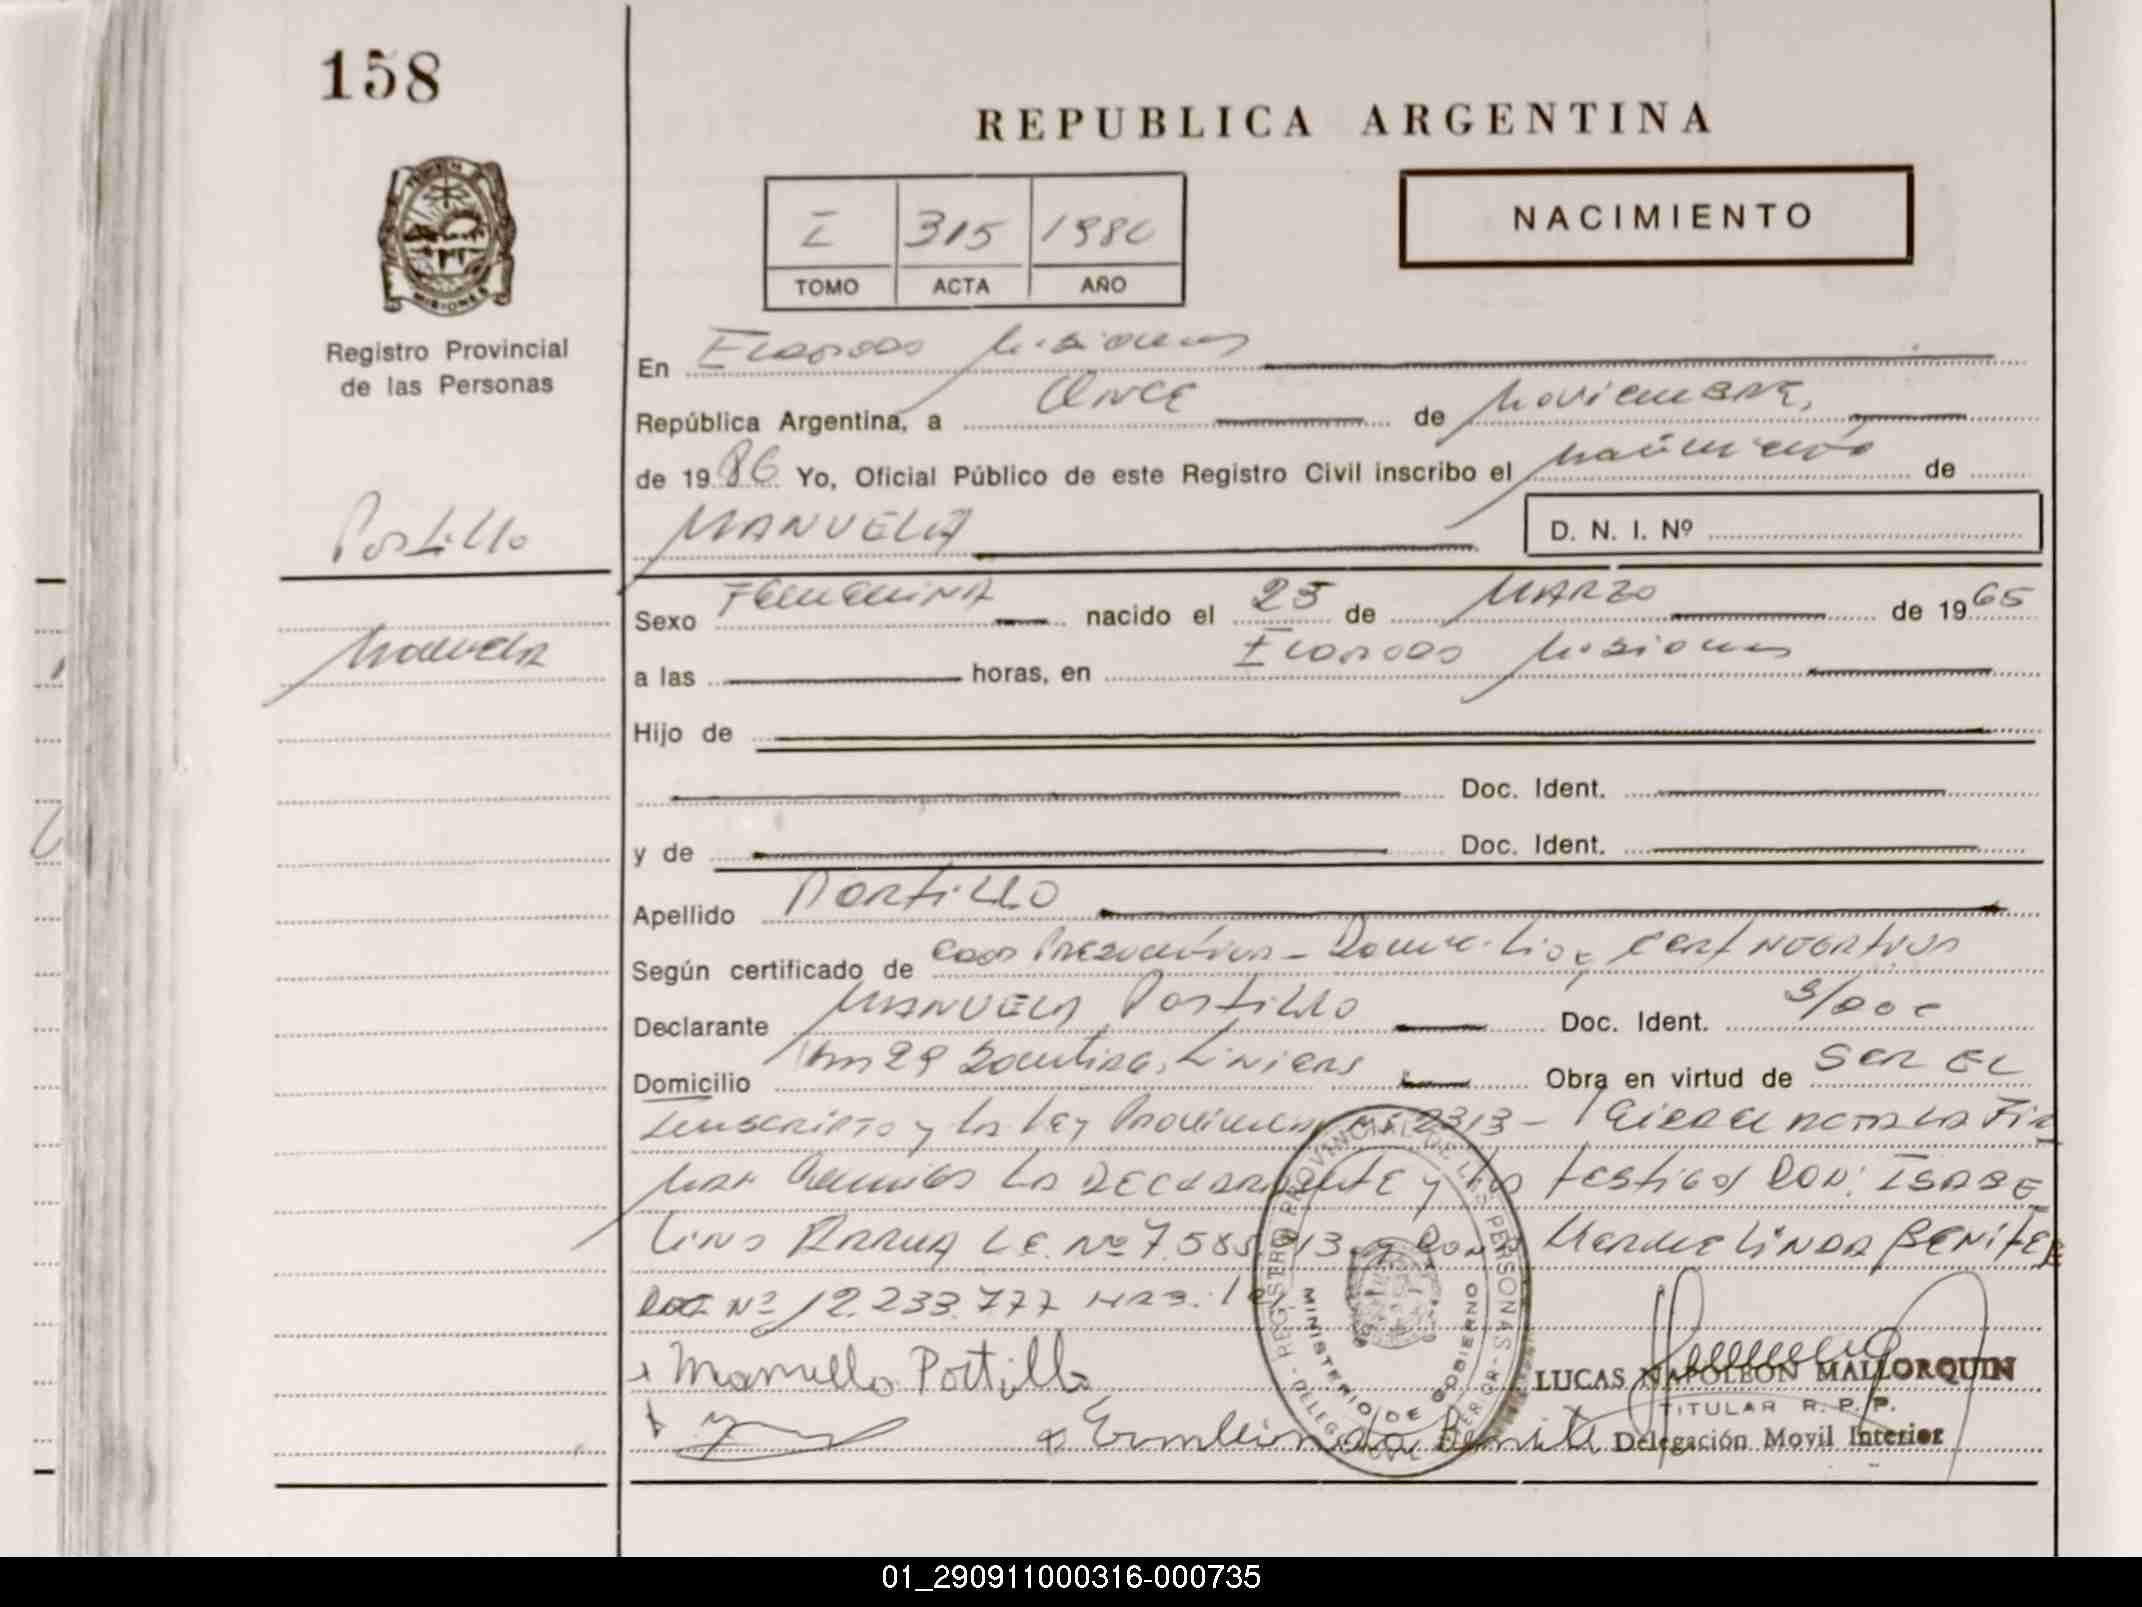 158
REPUBLICA ARGENTINA
NACIMIENTO
I 315 1986
TOMO ACTA AÑO
MISIONES
Registro Provincial
de las Personas
En Eldorado Misiones
República Argentina, a Once de Noviembre,
de 1986 Yo, Oficial Público de este Registro Civil inscribo el nacimiento de
Portillo
MANUELA
D. N. I. Nº
Manuela
Sexo Femenina nacido el 25 de MARZO de 1965
a las horas, en Eldorado Misiones
Hijo de
Doc. Ident.
y de Doc. Ident.
Apellido Portillo
Según certificado de Edad Presuntiva - Domicilio y Cert Negativo
Declarante MANUELA Portillo Doc. Ident. S/Doc
Domicilio Km 29 Liniers Obra en virtud de SER EL
Inscripto y la Ley Provincial Nº 2313 - Leida el acta la Fir
man conmigo la DECLARANTE y los testigos DON: ISABE
Lino ARRUA L.E. Nº 7.585. 13 y DOÑA Hermelinda BENITEZ
Doc Nº 12.233.777
Manuella Portillo
REGISTRO PROVINCIAL DE LAS PERSONAS
MINISTERIO DE GOBIERNO
LUCAS NAPOLEON MALLORQUIN
TITULAR R. P. P.
Delegación Movil Interior
01_290911000316-000735